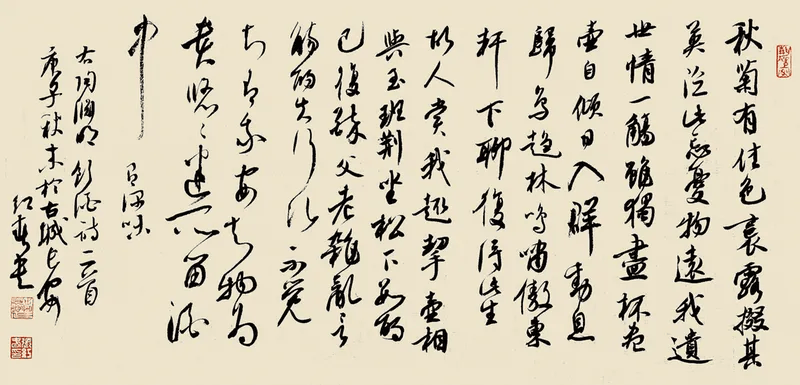 秋菊有佳色裛露掇其
英泛此忘憂物遠我遺
世情一觴雖獨盡杯盡
壺自傾日入群動息
歸鳥趨林鳴嘯傲東
軒下聊復得此生
故人賞我趣挈壺相
與至班荊坐松下數酌
已復醉父老雜亂言
觴酌失行次不覺
知有我安知物為
貴悠悠迷所留酒
中有深味
右陶淵明飲酒詩二首
庚子秋末於古城長安